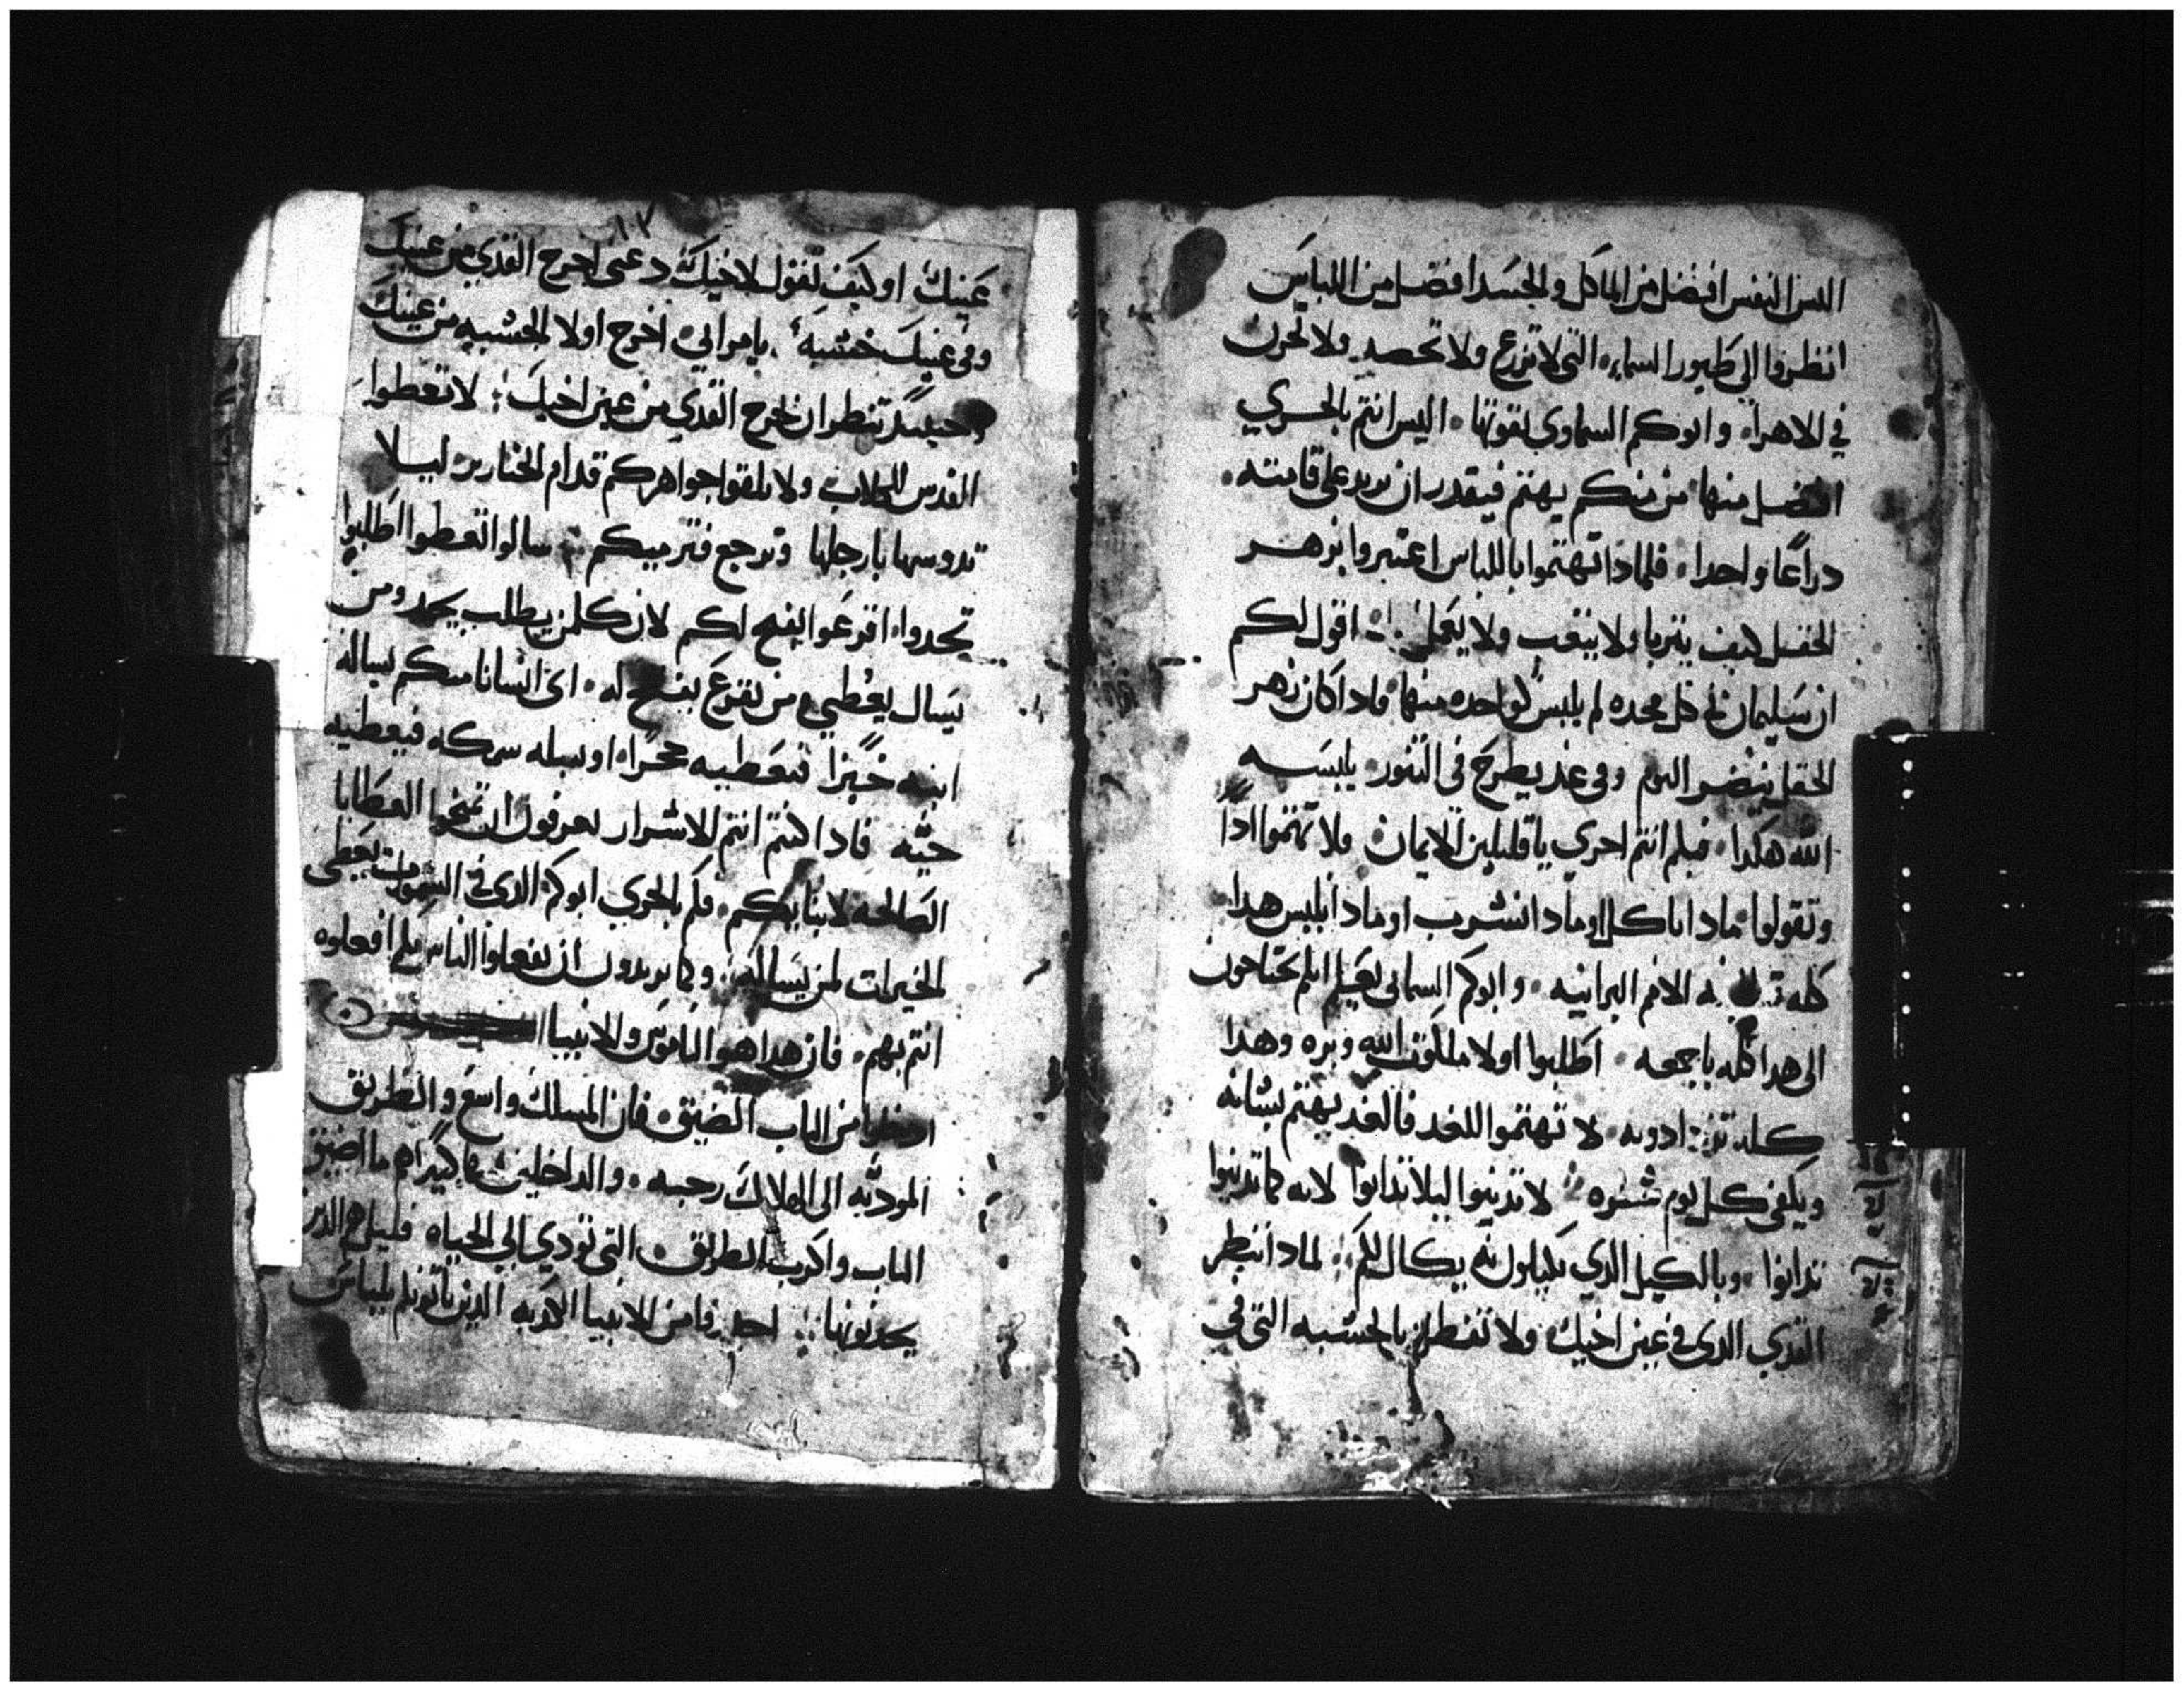 اليس النفس افضل من الماكل والجسد افضل من اللباس
انظروا الي طيور السماء التي لا تزرع ولا تحصد ولا تخزن
في الاهراء وابوكم السماوي يقوتها اليس انتم بالحري
افضل منها من منكم يهتم فيقدر ان يزيد علي قامته
دراعا واحدا فلمادا تهتموا باللباس اعتبروا بزهر
الحقل كيف يتربا ولا يتعب ولا يعمل اقول لكم
ان سليمان في كل مجده لم يلبس كواحده منها فادا كان زهر
الحقل ينضر اليوم وفي غد يطرح في التنور يلبسه
الله هكدا فبلم انتم احري يا قليلين الايمان ولا تهتموا ادا
وتقولوا مادا ناكل او مادا نشرب او مادا نلبس هدا
كله به الامم البرانيه وابوكم السمائي يعلم انكم تحتاجون
الي هدا كله باجمعه اطلبوا اولا ملكوت الله وبره وهدا
كله تزدادونه لا تهتموا للغد فالغد يهتم بشانه
ويكفي كل يوم شروه لا تدينوا ليلا تدانوا لانه كما تدينوا
تدانوا وبالكيل الدي تكيلون به يكال لكم لمادا تنظر
القدي الدي في عين اخيك ولا تفطن بالخشبه التي في
١٠٢
عينك او كيف تقول لاخيك دعني اخرج القدي من عينك
وفي عينك خشبه يا مرائي اخرج اولا الخشبه من عينك
وحينئد تنظر ان تخرج القدي من عين اخيك لا تعطوا
القدس للكلاب ولا تلقوا جواهركم قدام الخنازير ليلا
تدوسها بارجلها وترجع فترميكم سالوا تعطوا اطلبوا
تجدوا اقرعوا يفتح لكم لان كلمن يطلب يجد ومن
يسال يعطي ومن يقرع يفتح له اي انسانا منكم يساله
ابنه خبزا فيعطيه حجرا او يسله سمكه فيعطيه
حيه فادا كنتم انتم الاشرار تعرفون ان تمنحوا العطايا
الصالحه لابنايكم فكم بالحري ابوكم الدي في السموات يعطي
الخيرات لمن يساله وكما تريدون ان يفعلوا الناس بكم افعلوه
انتم بهم فان هدا هو الناموس والانبيا
ادخلوا من الباب الضيق فان المسلك واسع والطريق
الموديه الي الهلاك رحبه والداخلين فيها كثيرا ما اضيق
الباب واكرب الطريق التي تودي الي الحياه قليل هم الدين
يجدونها احدروا من الانبيا الكدبه الدين ياتونكم بلباس